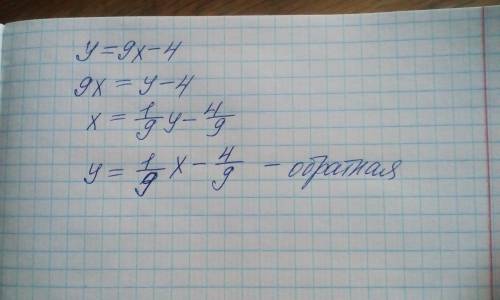 y = 9x - 4
9x = y - 4
x = 1/9 y - 4/9
y = 1/9 x - 4/9 - обратная